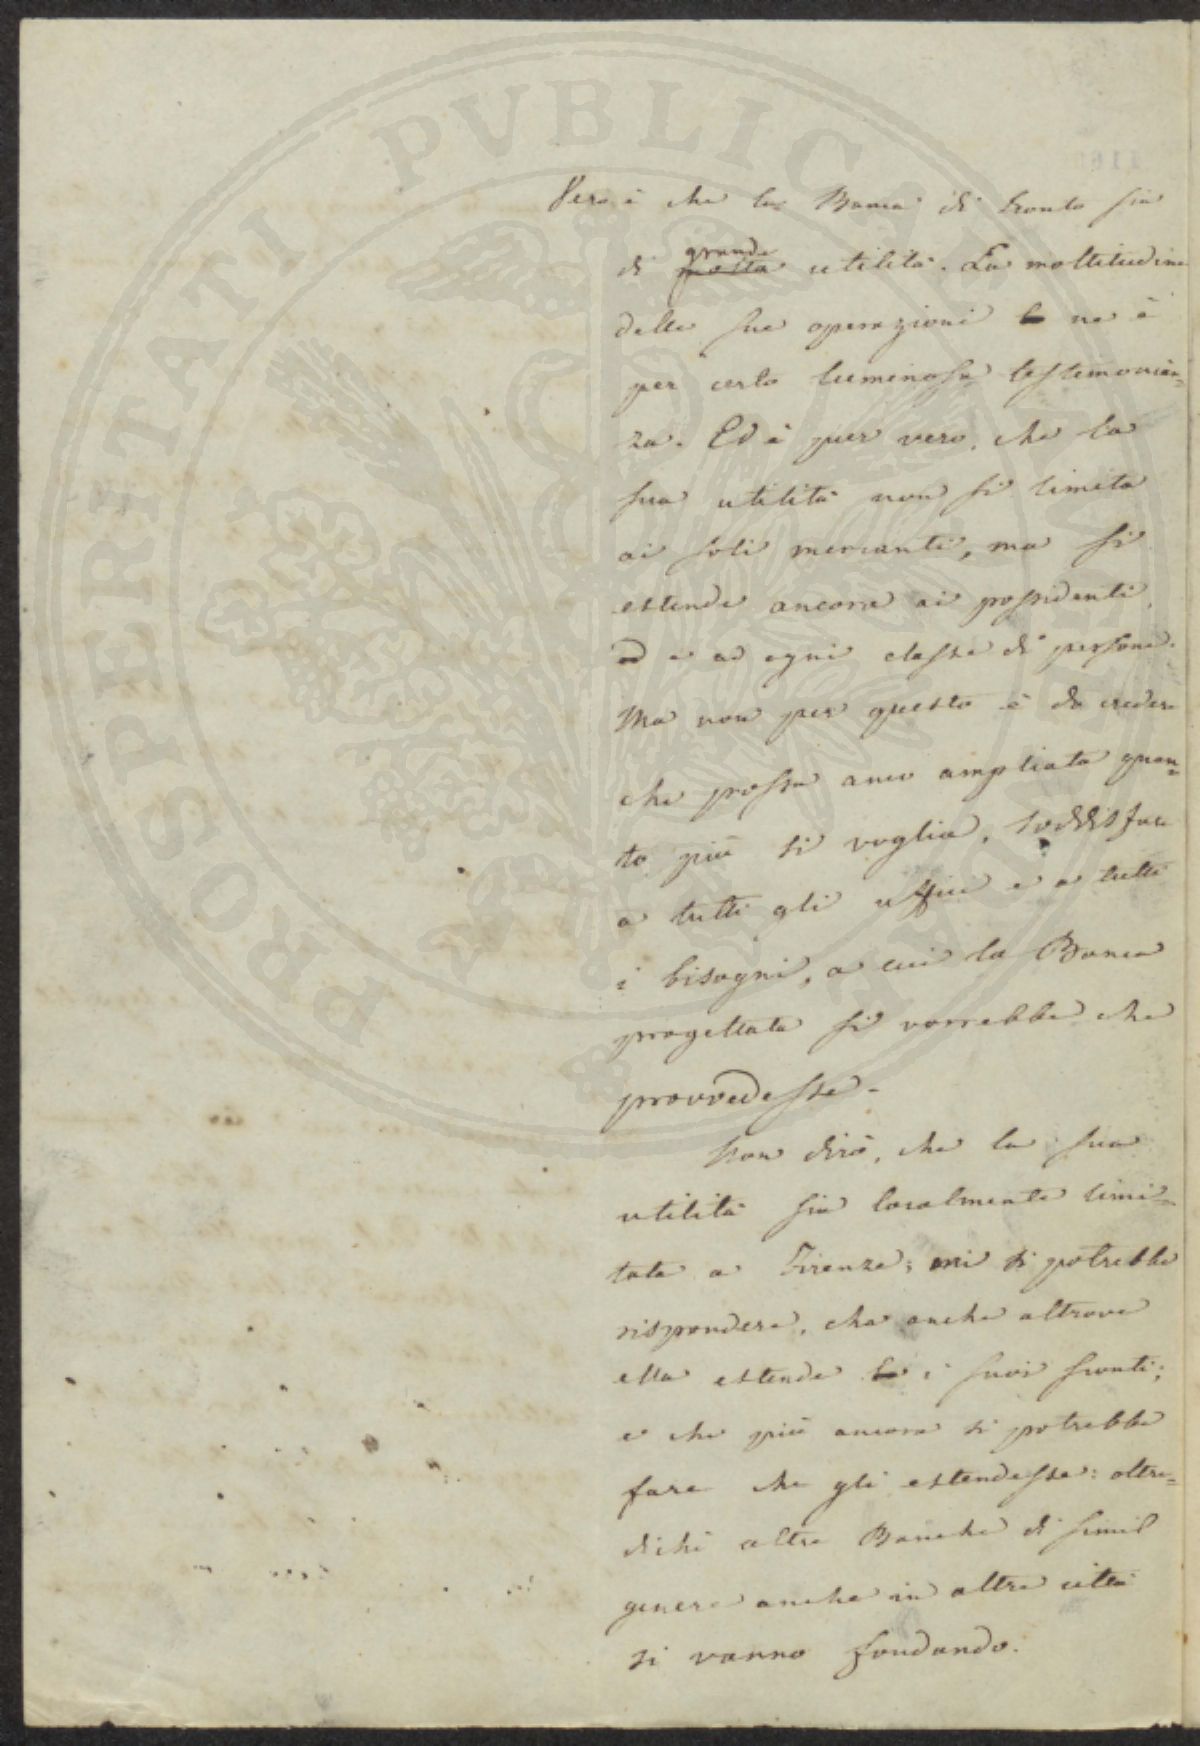 Vero è che la Banca di Sconto sia
di grande molta utilità. La moltitudine
delle sue operazioni le ne è
per certo luminosa testimonian=
za. Ed è pur vero, che la
sua utilità non si limita
ai soli mercanti, ma si
estende ancora ai possidenti,
ed e ad ogni classe di persone.
Ma non per questo è da credere
che possa anco ampliata quan=
to più si voglia, soddisfare
a tutti gli uffici e a tutti
i bisogni, a cui la Banca
progettata si vorrebbe che
provvedesse.
Non dirò, che la sua
utilità sia localmente limi=
tata a Firenze; mi si potrebbe
rispondere, che anche altrove
ella estende le i suoi sconti;
e che più ancora si potrebbe
fare che gli estendesse: oltre=
dichè altre Banche di simil
genere anche in altre città
si vanno fondando.
PROSPERITATI PVBLICAE